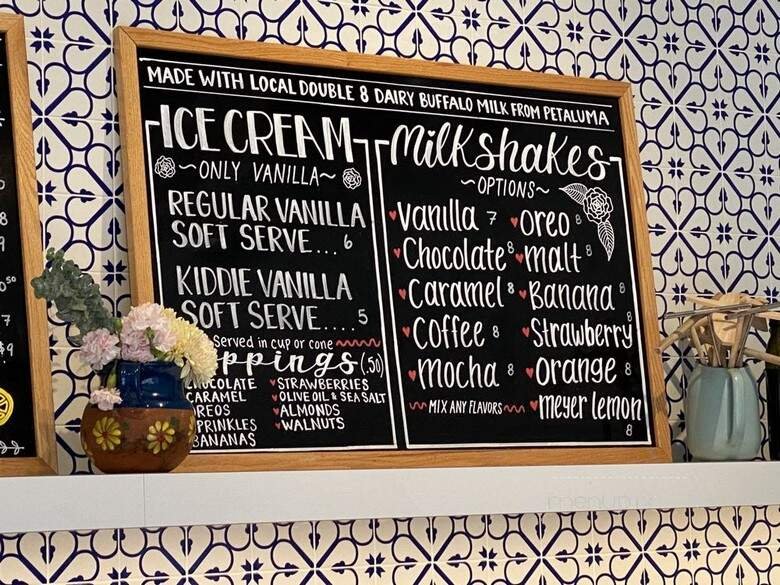 MADE WITH LOCAL DOUBLE 8 DAIRY BUFFALO MILK FROM PETALUMA
ICE CREAM
~ONLY VANILLA~
REGULAR VANILLA
SOFT SERVE... 6
KIDDIE VANILLA
SOFT SERVE.... 5
Served in cup or cone
ppings (.50)
CHOCOLATE
CARAMEL
OREOS
PRINKLES
BANANAS
STRAWBERRIES
OLIVE OIL & SEA SALT
ALMONDS
WALNUTS
Milkshakes
~OPTIONS~
vanilla 7
Chocolate 8
Caramel 8
Coffee 8
mocha 8
MIX ANY FLAVORS
oreo 8
malt 8
Banana 8
Strawberry 8
orange 8
meyer lemon 8
8
9
50
7
$9